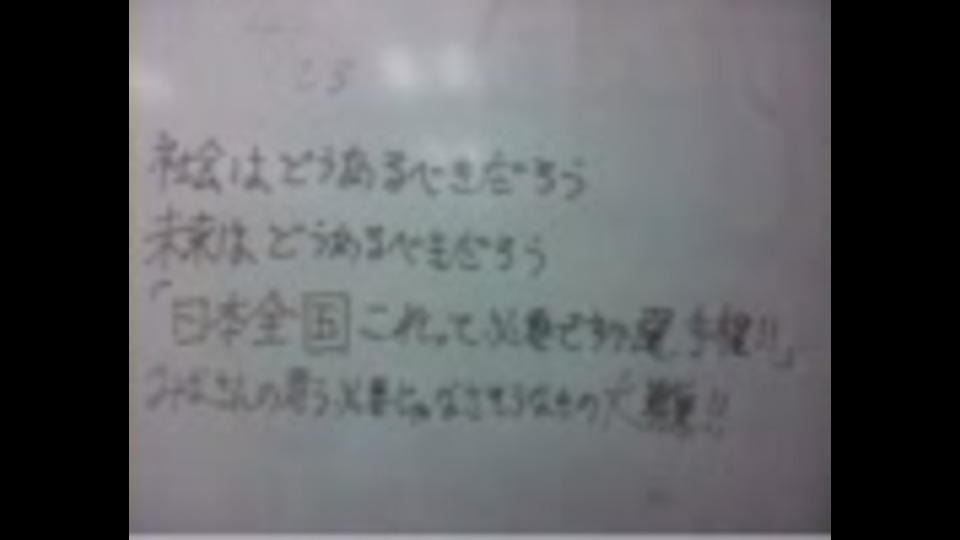 社会はどうあるべきだろう
未来はどうあるべきだろう
「日本全国これって必要ですか選手権!!」
みなさんの思う必要じゃなさそうなもの大募集!!